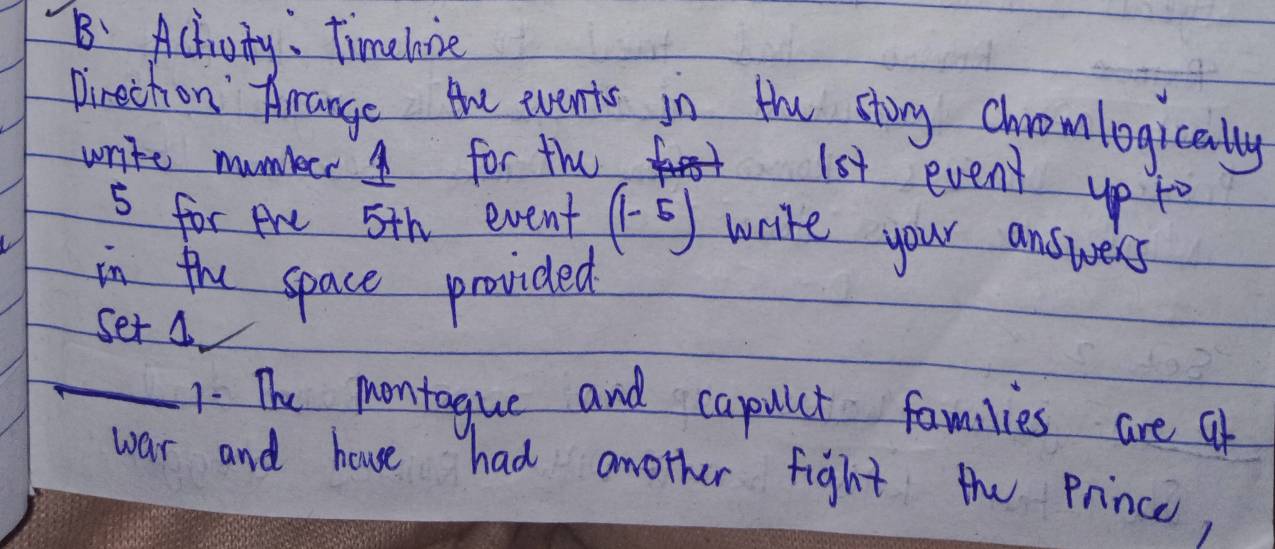 B. Activity: Timeline
Direction: Arrange the events in the story Chronologically
write number 1 for the 1st event up to
5 for the 5th event (1-5) write your answers
in the space provided
Set 1
1. The Montague and capulet families are at
war and have had another fight the Prince,